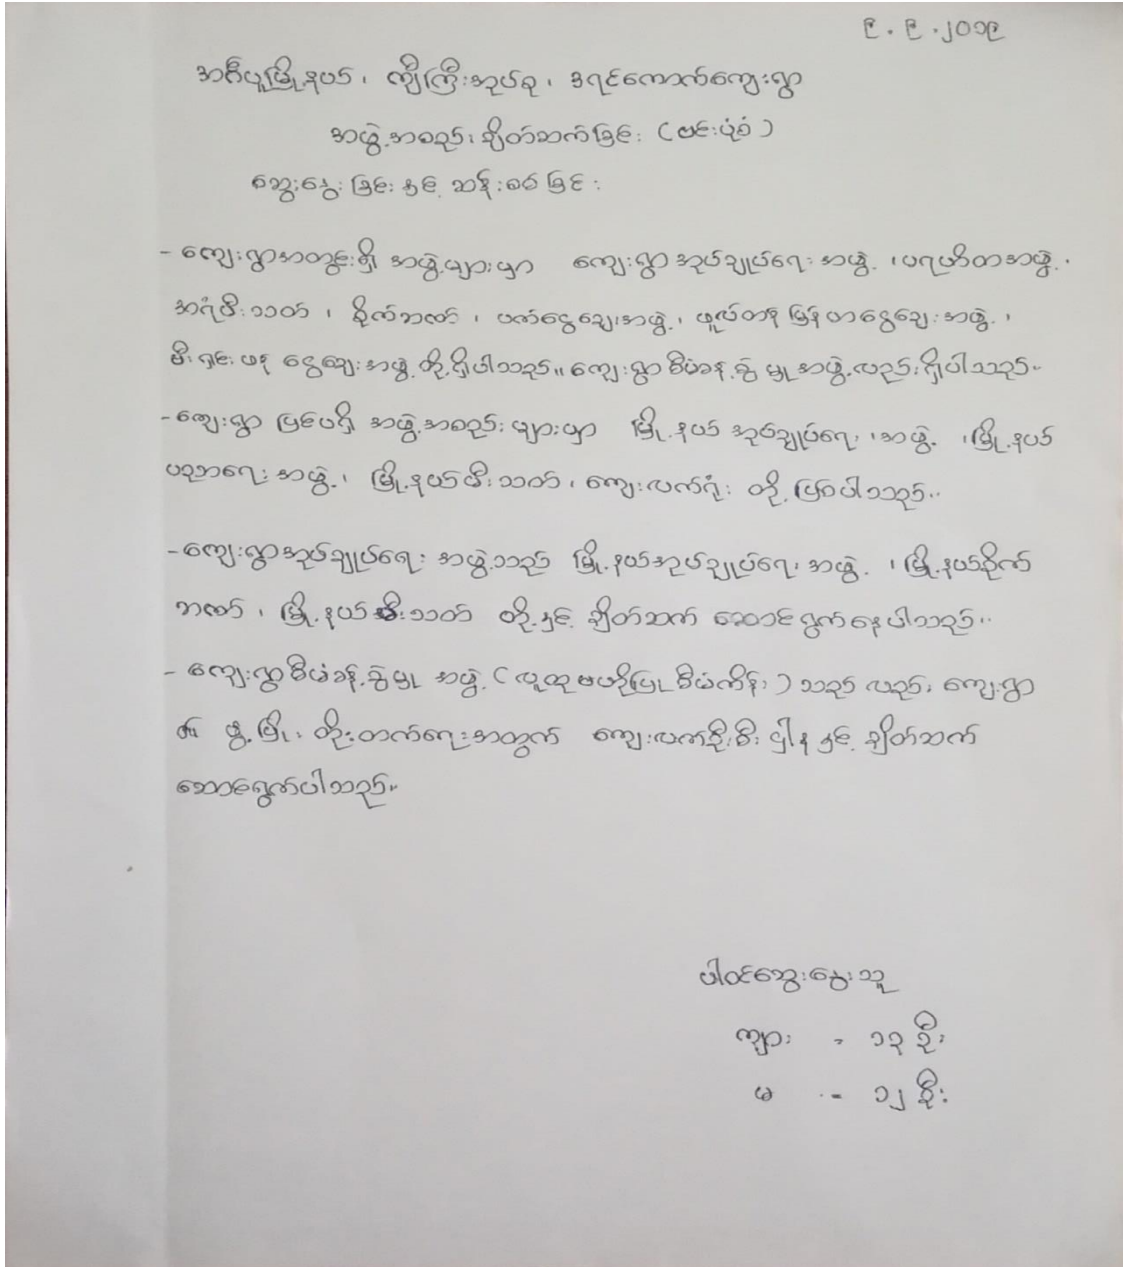 ၉.၉.၂၀၁၉
အင်္ဂပူမြို့နယ်၊ ကျီကြီးအုပ်စု၊ ဒရင်ကောက်ကျေးရွာ
အဖွဲ့အစည်းချိတ်ဆက်ခြင်း (ဗင်းပုံစံ)
ဆွေးနွေးခြင်းနှင့် ဆန်းစစ်ခြင်း
- ကျေးရွာအတွင်းရှိ အဖွဲ့များမှာ ကျေးရွာအုပ်ချုပ်ရေးအဖွဲ့၊ ပရဟိတအဖွဲ့၊
အရံမီးသတ်၊ စိုက်ဘဏ်၊ ပတ်ငွေချေးအဖွဲ့၊ ဖူလ်တန မြန်မာငွေချေးအဖွဲ့၊
မီးရှင်းဖန ငွေချေးအဖွဲ့တို့ရှိပါသည်။ ကျေးရွာစီမံခန့်ခွဲမှုအဖွဲ့လည်းရှိပါသည်။
- ကျေးရွာပြင်ပရှိ အဖွဲ့အစည်းများမှာ မြို့နယ်အုပ်ချုပ်ရေးအဖွဲ့၊ မြို့နယ်
ပညာရေးအဖွဲ့၊ မြို့နယ်မီးသတ်၊ ကျေးလက်ရုံး တို့ဖြစ်ပါသည်။
- ကျေးရွာအုပ်ချုပ်ရေးအဖွဲ့သည် မြို့နယ်အုပ်ချုပ်ရေးအဖွဲ့၊ မြို့နယ်စိုက်
ဘဏ်၊ မြို့နယ်မီးသတ် တို့နှင့် ချိတ်ဆက် ဆောင်ရွက်နေပါသည်။
- ကျေးရွာစီမံခန့်ခွဲမှု အဖွဲ့ (လူထုဗဟိုပြုစီမံကိန်း) သည်လည်း ကျေးရွာ
၏ ဖွံ့ဖြိုးတိုးတက်ရေးအတွက် ကျေးလက်ဦးစီးဌာနနှင့် ချိတ်ဆက်
ဆောင်ရွက်ပါသည်။
ပါဝင်ဆွေးနွေးသူ
ကျား - ၁၃ ဦး
မ - ၁၂ ဦး